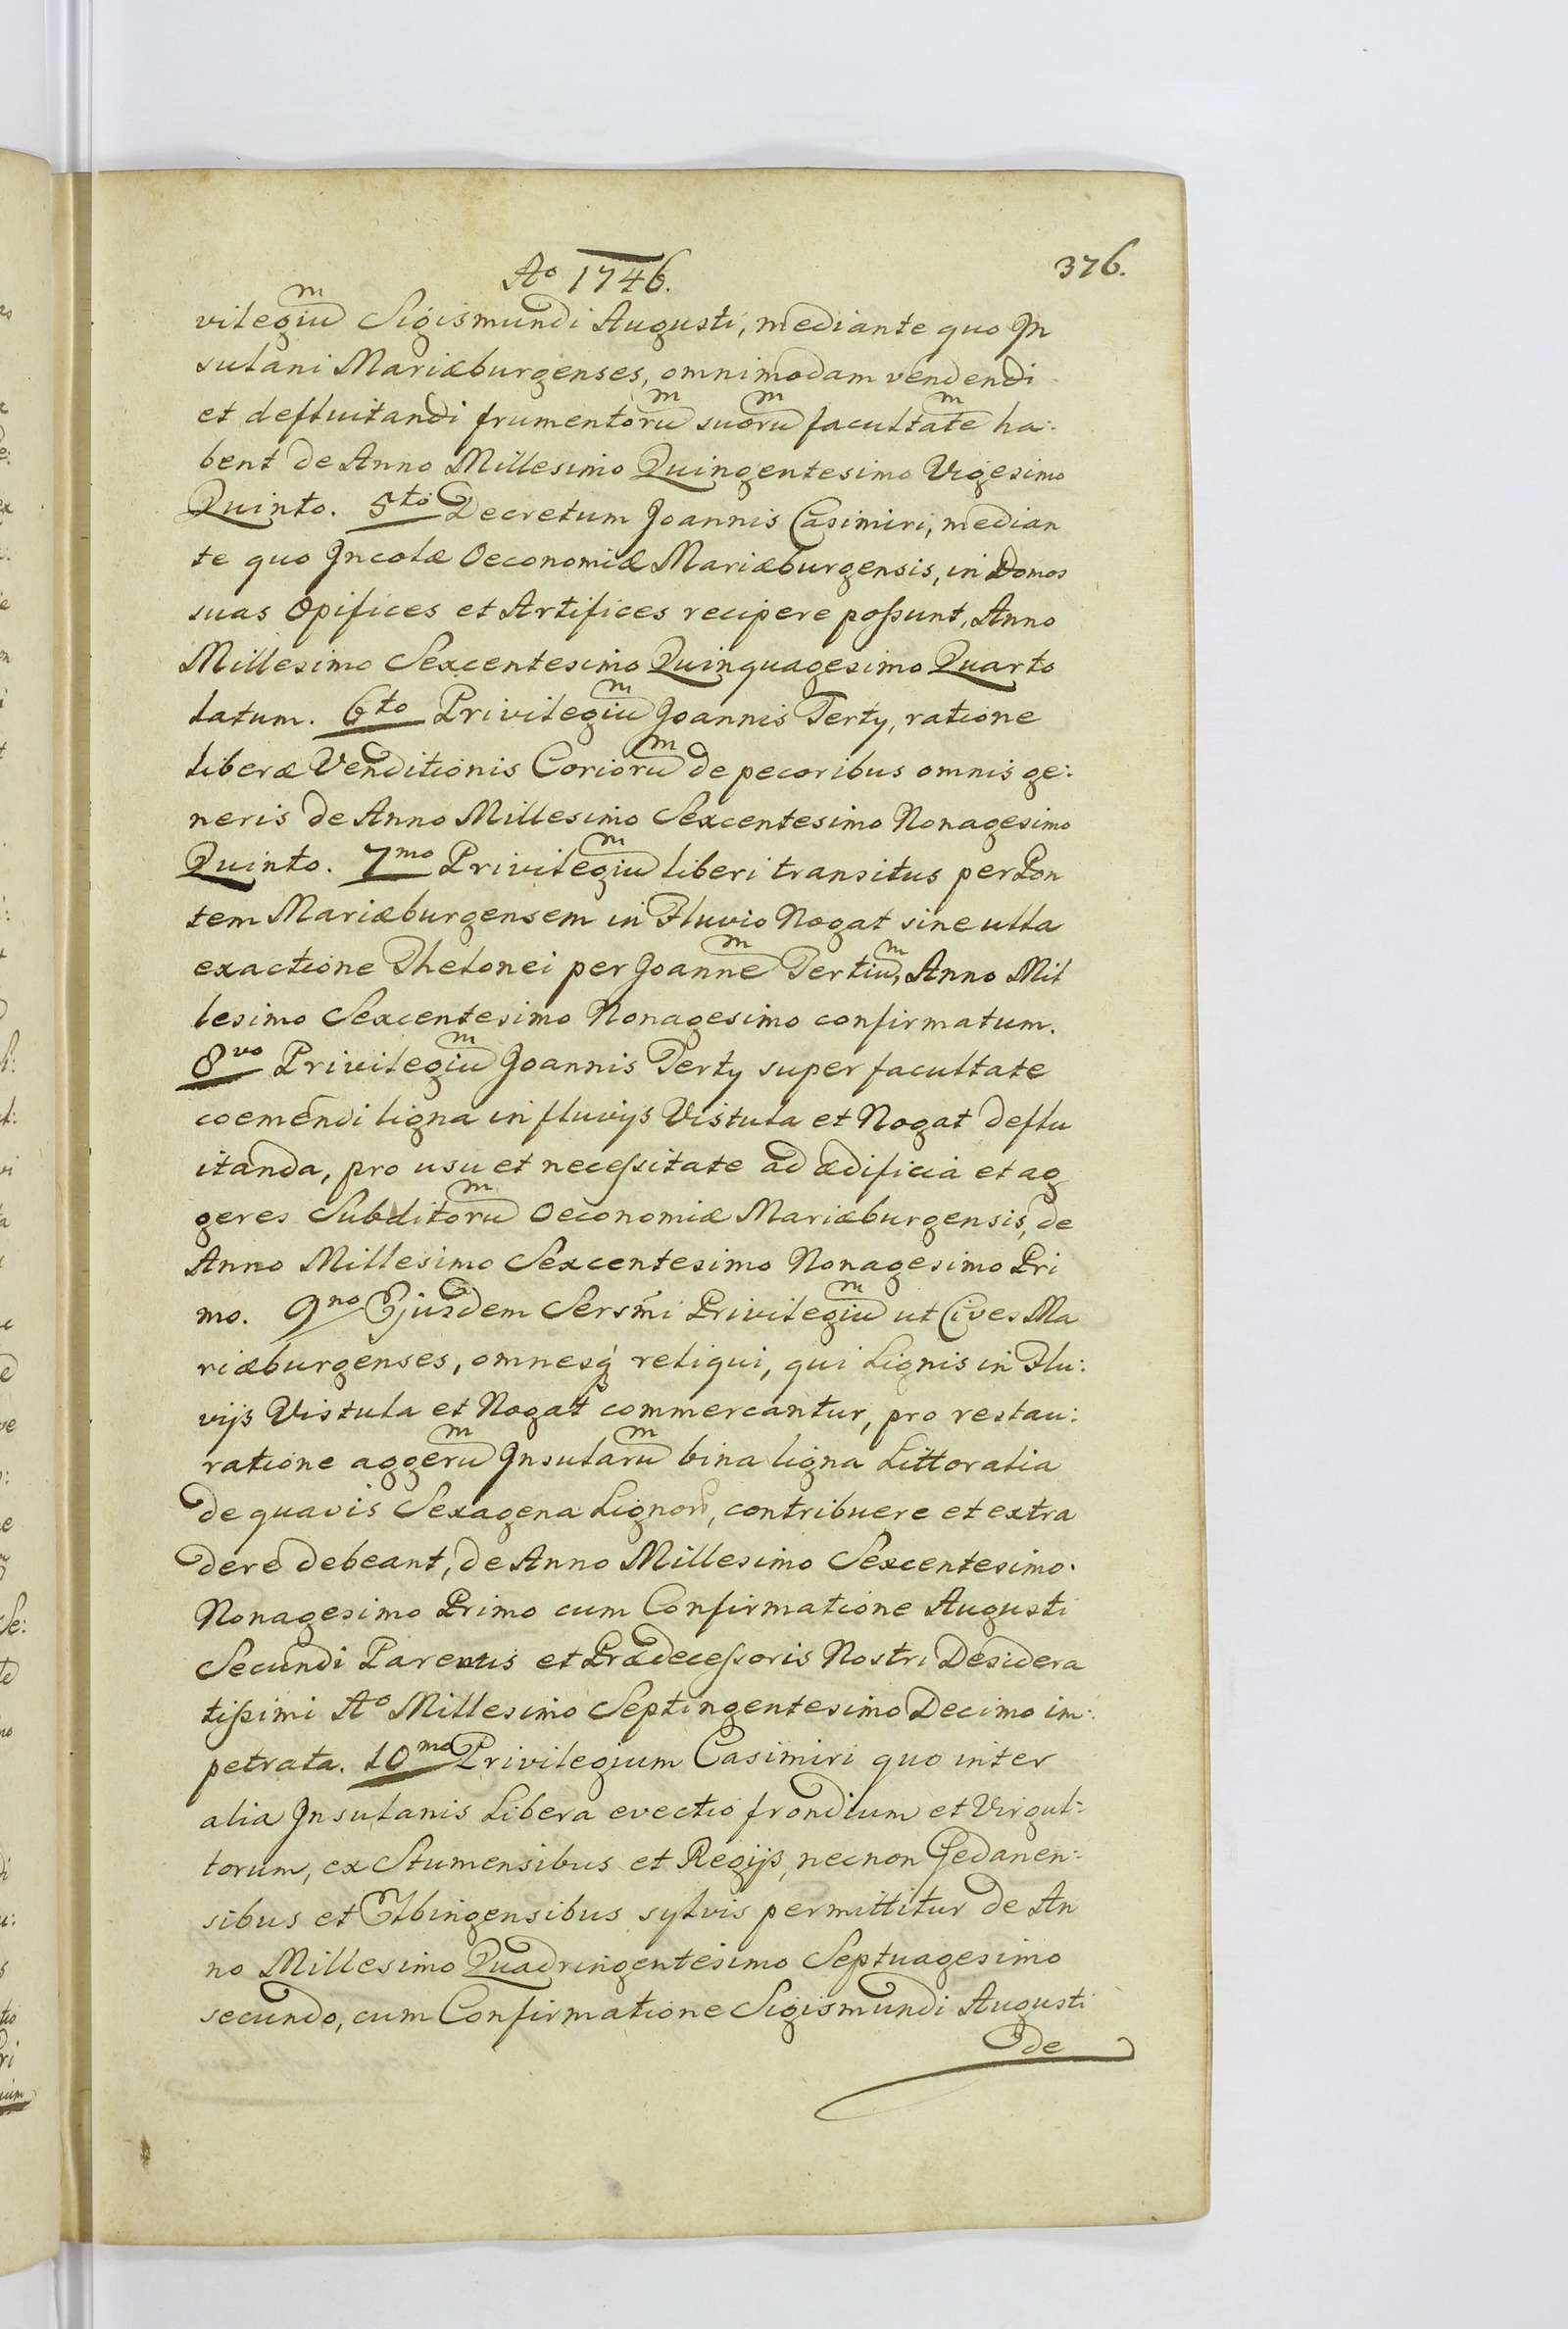 Ao 1746.
376.
vilegium Sigismundi Augusti, mediante quo In
sulani Mariæburgenses, omnimodam vendendi
et defluitandi frumentorum suorum facultatem ha:
bent de Anno Millesimo Quingentesimo Vigesimo
Quinto. 5to Decretum Joannis Casimiri, median
te quo Incolæ Oeconomiæ Mariæburgensis, in Domos
suas Opifices et Artifices recipere poſsunt, Anno
Millesimo Sexcentesimo Quinquagesimo Quarto
latum. 6to Privilegium Joannis Terty, ratione
liberæ Venditionis Coriorum de pecoribus omnis ge:
neris de Anno Millesimo Sexcentesimo Nonagesimo
Quinto. 7mo Privilegium liberi transitus per Pon
tem Mariæburgensem in Fluvio Nogat sine ulla
exactione Thelonei per Joannem Tertium, Anno Mil
lesimo Sexcentesimo Nonagesimo confirmatum.
8vo Privilegium Joannis Terty super facultate
coemendi ligna in fluvijs Vistula et Nogat deflu
itanda, pro usu et neceſsitate ad ædificia et ag
geres Subditorum Oeconomiæ Mariæburgensis, de
Anno Millesimo Sexcentesimo Nonagesimo Pri
mo. 9no Ejusdem Sersm̃i Privilegium ut Cives Ma
riæburgenses, omnesq́ reliqui, qui Lignis in Flu:
vijs Vistula et Nogat commercantur, pro restau:
ratione aggerum Insularum bina ligna Littoralia
de quavis Sexagena Lignorũ, contribuere et extra
dere debeant, de Anno Millesimo Sexcentesimo
Nonagesimo Primo cum Confirmatione Augusti
Secundi Parentis et Prædeceſsoris Nostri Desidera
tiſsimi Ao Millesimo Septingentesimo Decimo im:
petrata. 10mo Privilegium Casimiri quo inter
alia Insulanis Libera evectio frondium et Virgul:
torum, ex Stumensibus et Regijs, necnon Gedanen:
sibus et Elbingensibus sylvis permittitur de An
no Millesimo Quadringentesimo Septuagesimo
secundo, cum Confirmatione Sigismundi Augusti
de